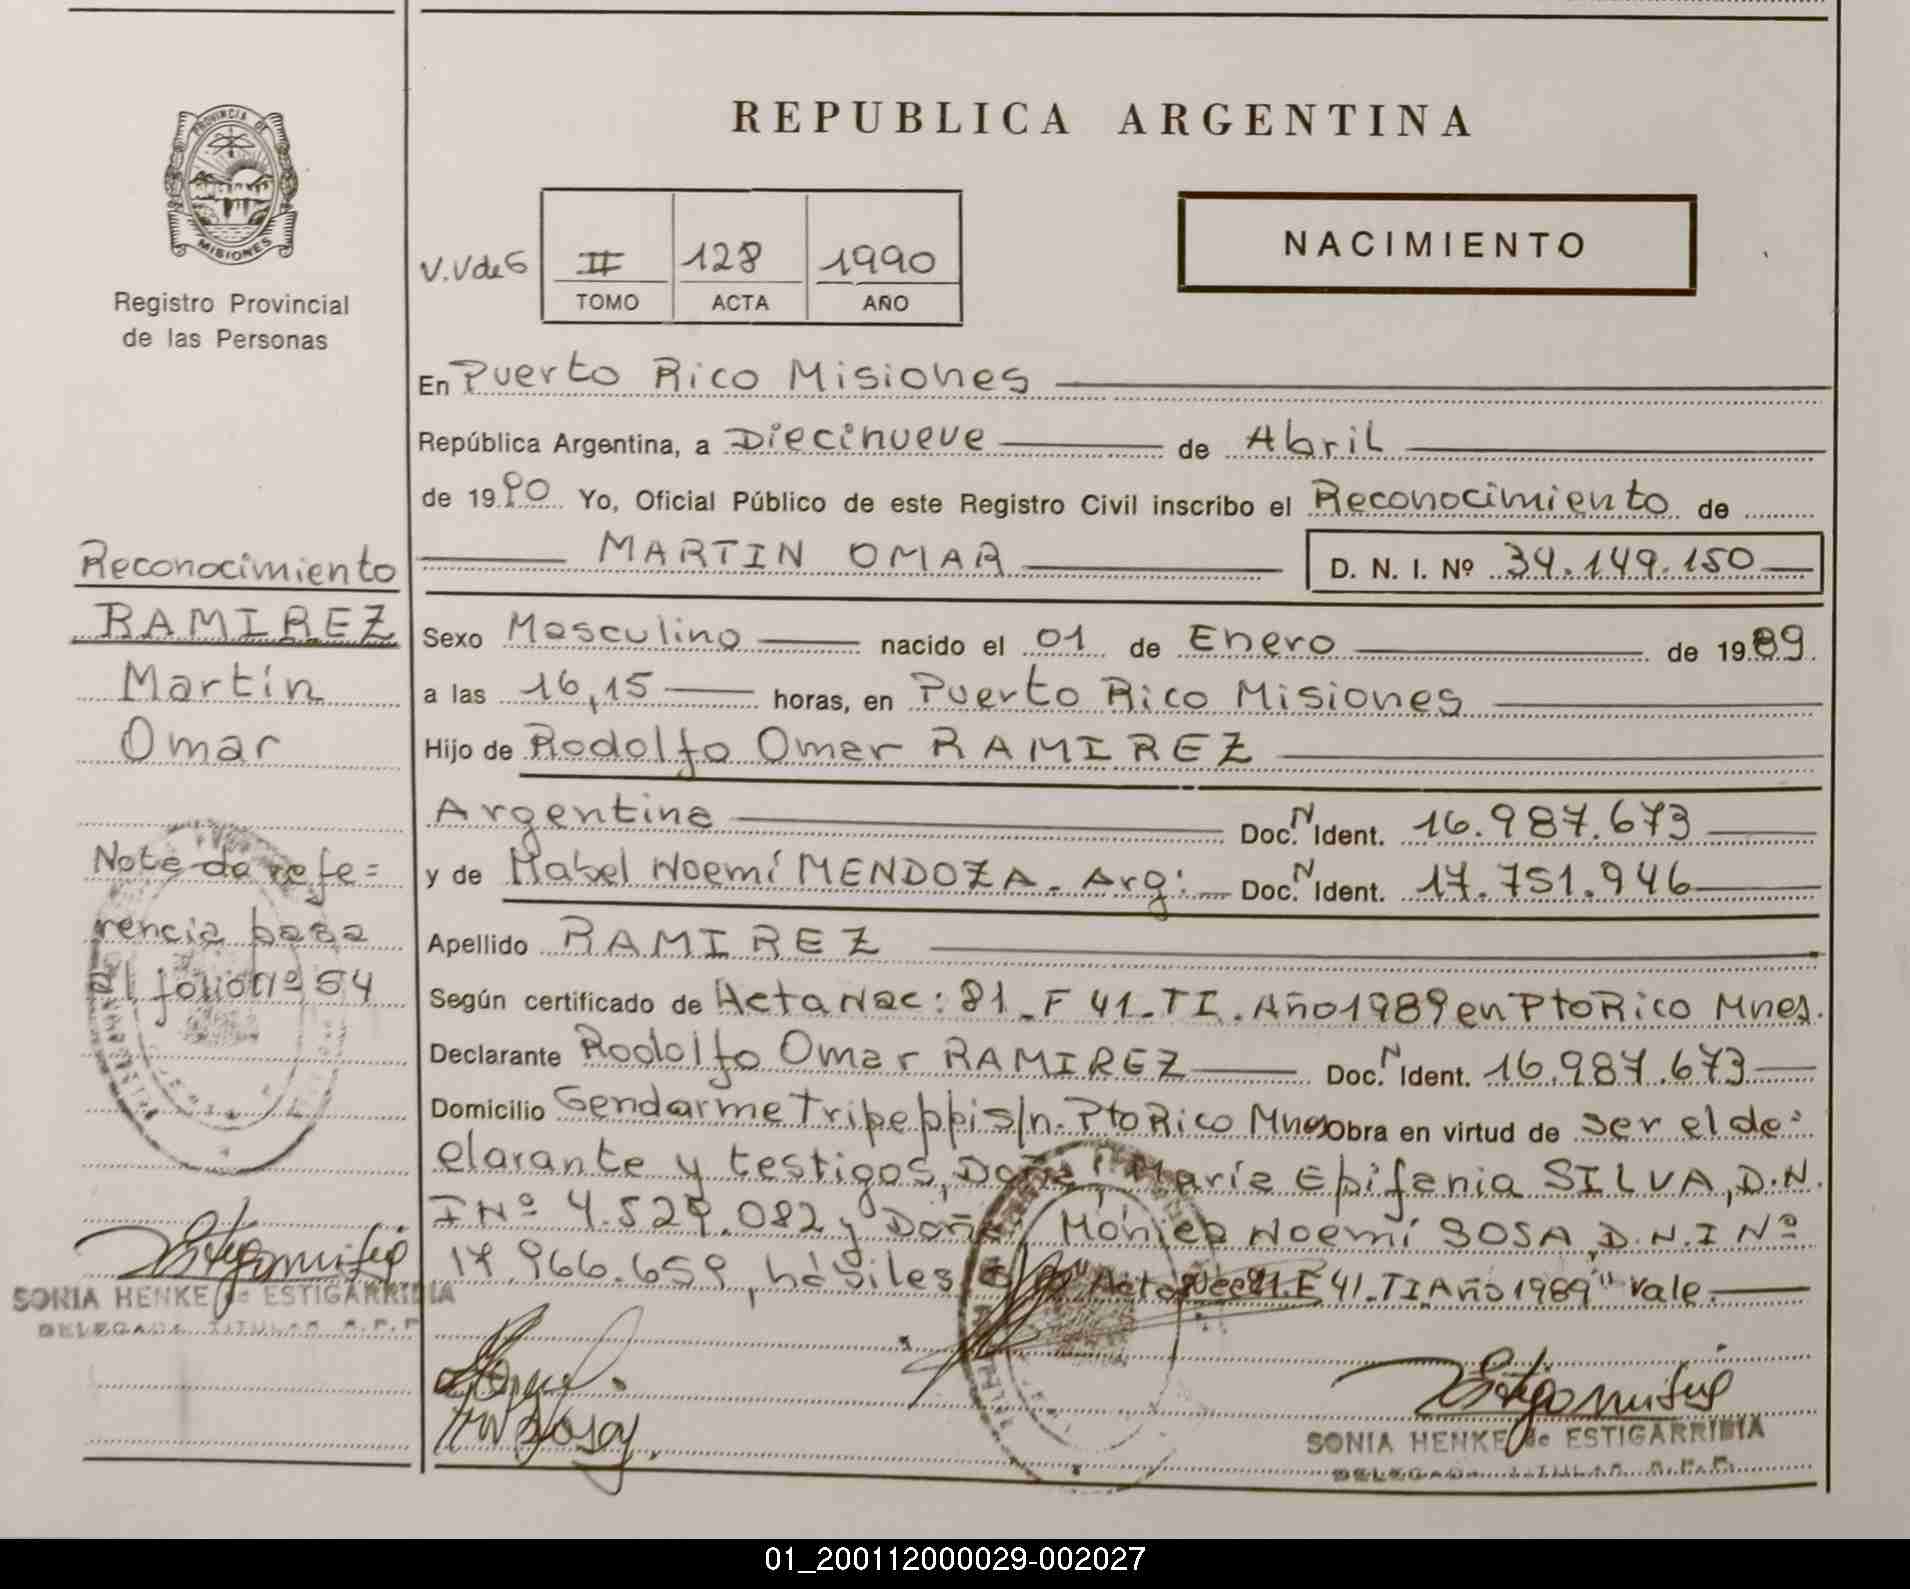 PROVINCIA DE
MISIONES
Registro Provincial
de las Personas
Reconocimiento
RAMIREZ
Martín
Omar
Nota de refe=
rencia pasa
al folio nº 54
SONIA HENKE de ESTIGARRIBIA
DELEGADA TITULAR R.P.P.
REPUBLICA ARGENTINA
V.V de G
II 128 1990
TOMO ACTA AÑO
NACIMIENTO
En Puerto Rico Misiones
República Argentina, a Diecinueve de Abril
de 1990 Yo, Oficial Público de este Registro Civil inscribo el Reconocimiento de
MARTIN OMAR D. N. I. Nº 34.149.150
Sexo Masculino nacido el 01 de Enero de 1989
a las 16,15 horas, en Puerto Rico Misiones
Hijo de Rodolfo Omar RAMIREZ
Argentina Doc. N Ident. 16.987.673
y de Mabel Noemí MENDOZA - Arg: Doc. N Ident. 17.751.946
Apellido RAMIREZ
Según certificado de Acta Nac: 81 - F 41 - TI. Año 1989 en Pto Rico Mnes.
Declarante Rodolfo Omar RAMIREZ Doc. N Ident. 16.987.673
Domicilio Gendarme Tripeppi s/n. Pto Rico Mnes Obra en virtud de ser el de=
clarante y testigos, Doña María Epifania SILVA, D.N.
I Nº 4.529.082 y Doña Mónica Noemí SOSA, D.N.I Nº
17.966.659, hábiles "Acta Nac 81. F 41 - TI Año 1989" Vale.
SONIA HENKE de ESTIGARRIBIA
DELEGADA TITULAR R.P.P.
01_200112000029-002027